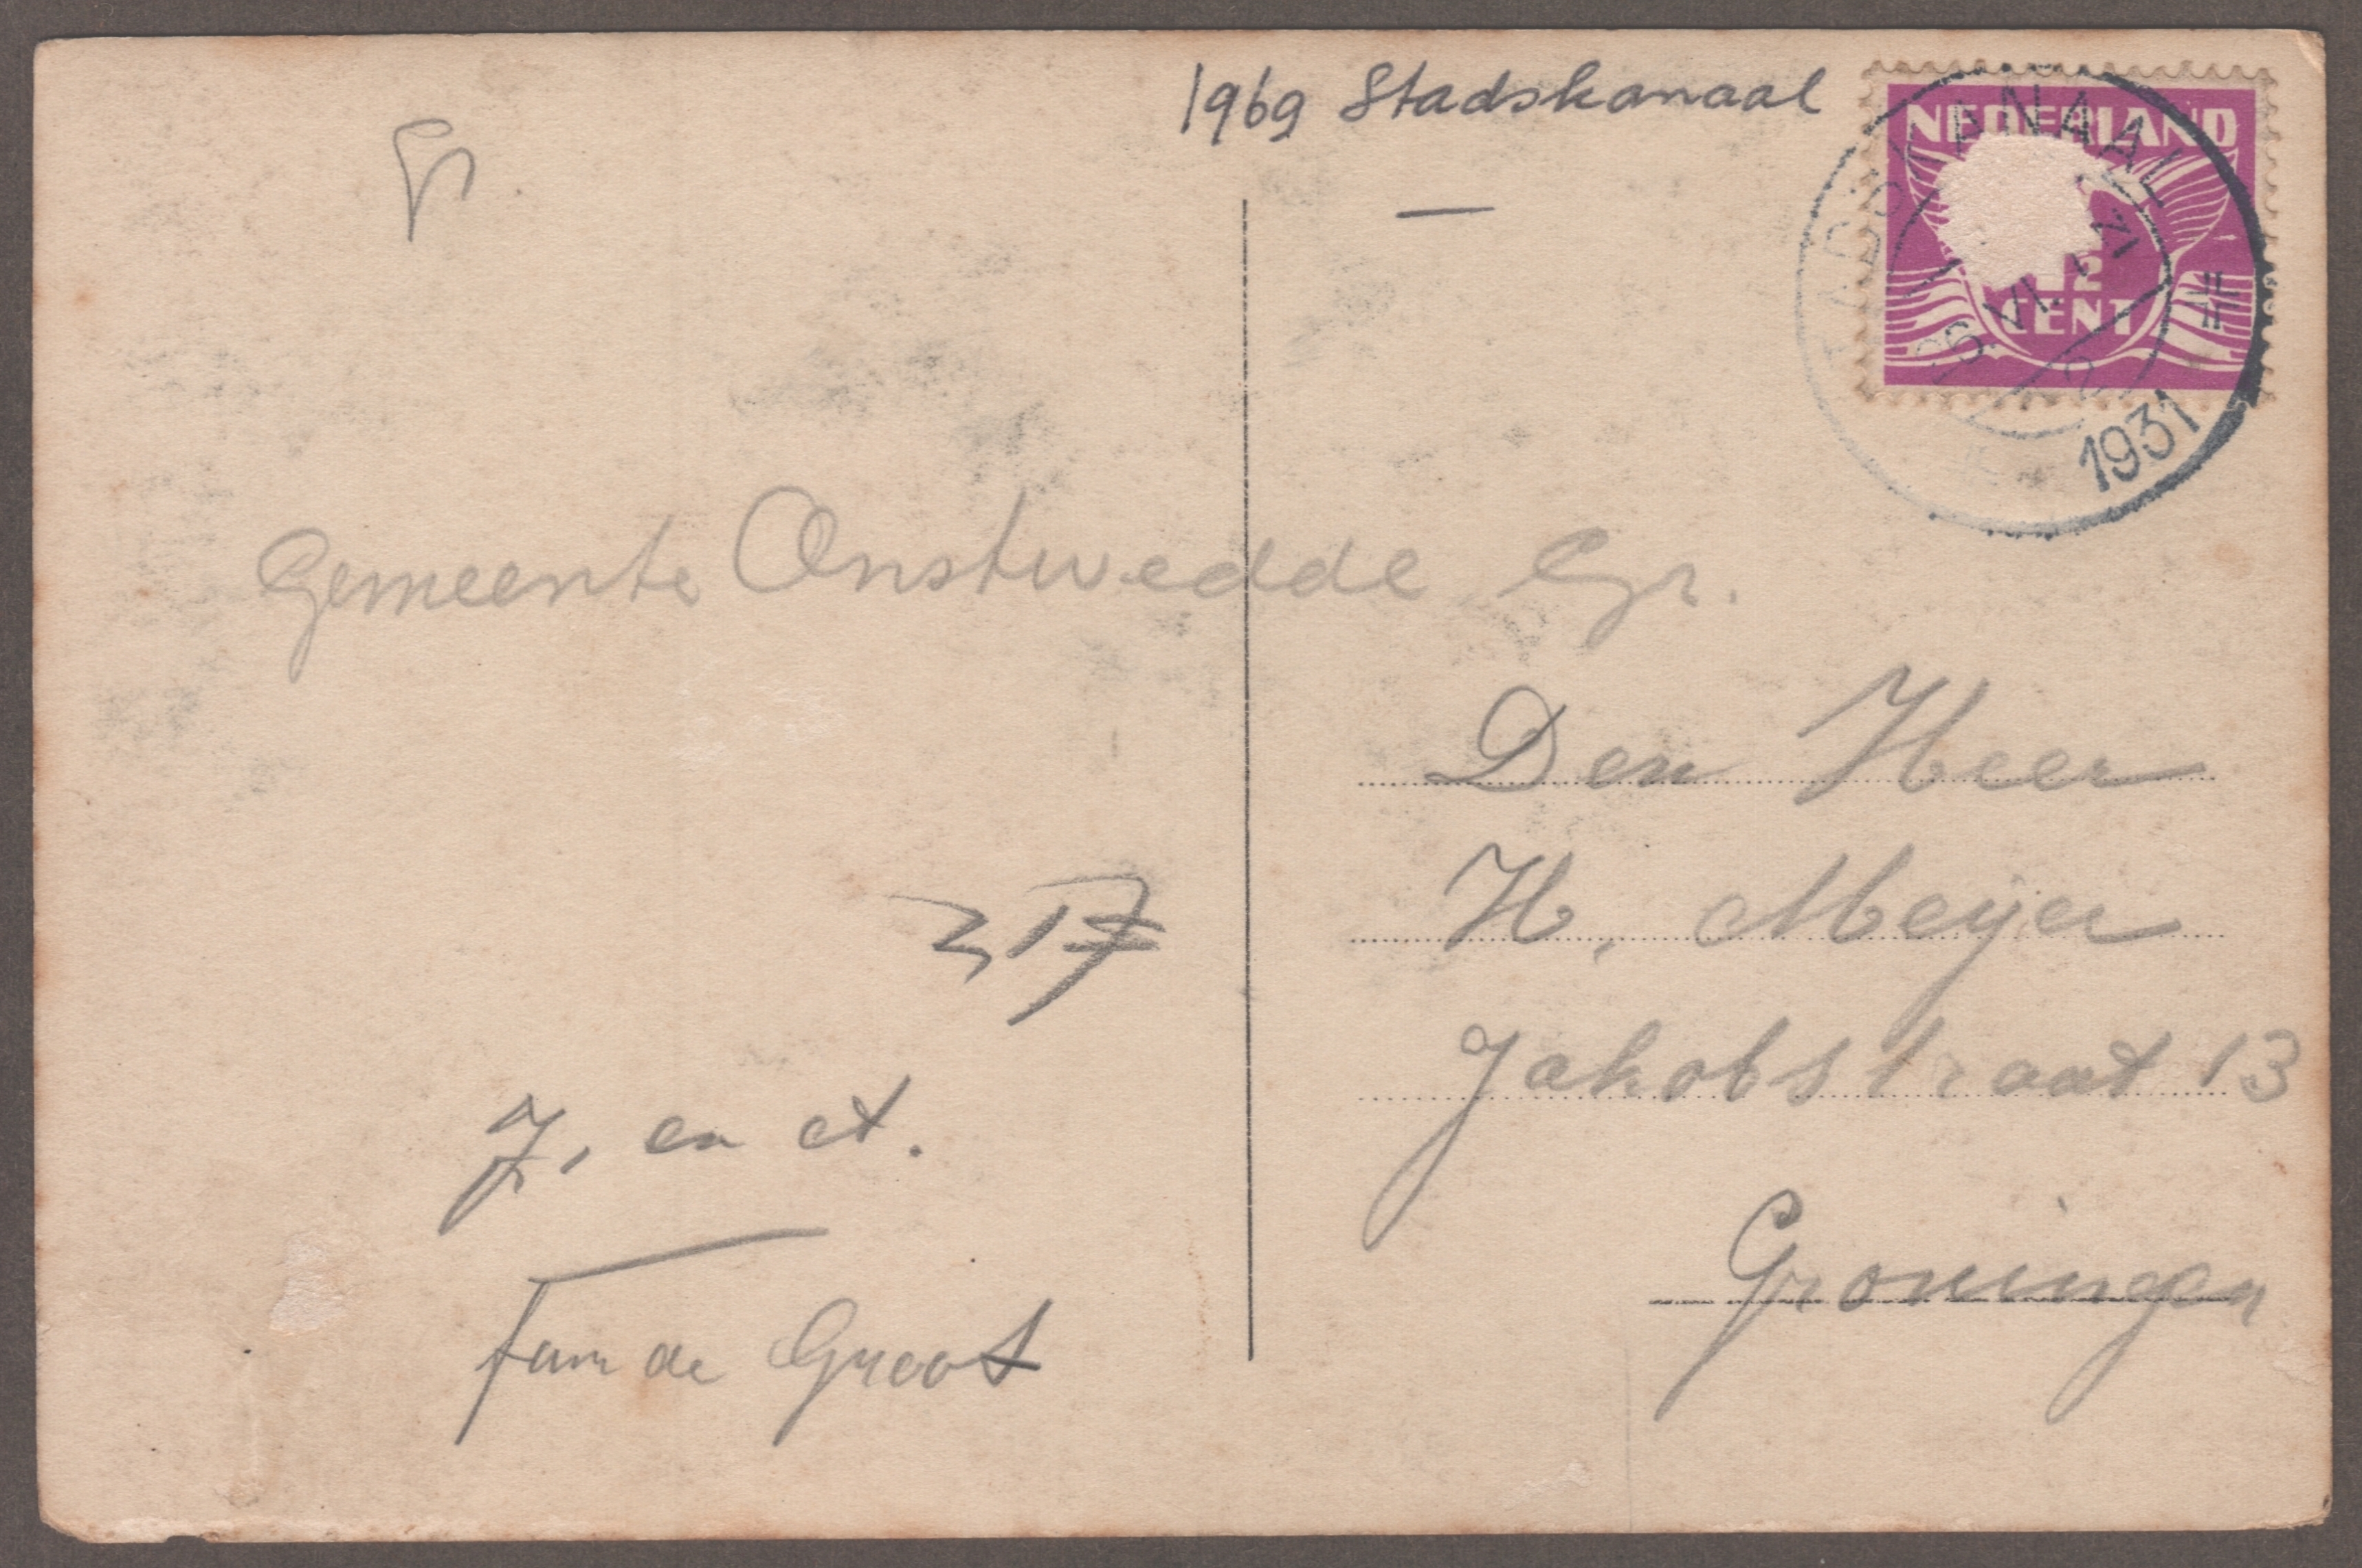 Gr
1969 Stadskanaal
NEDERLAND
CENT
STADSKANAAL
1931
Gemeente Onstwedde Gr.
Den Heer
H. Meyer
Jakobstraat 13
Groningen
317
J. en A.
Fam de Groot